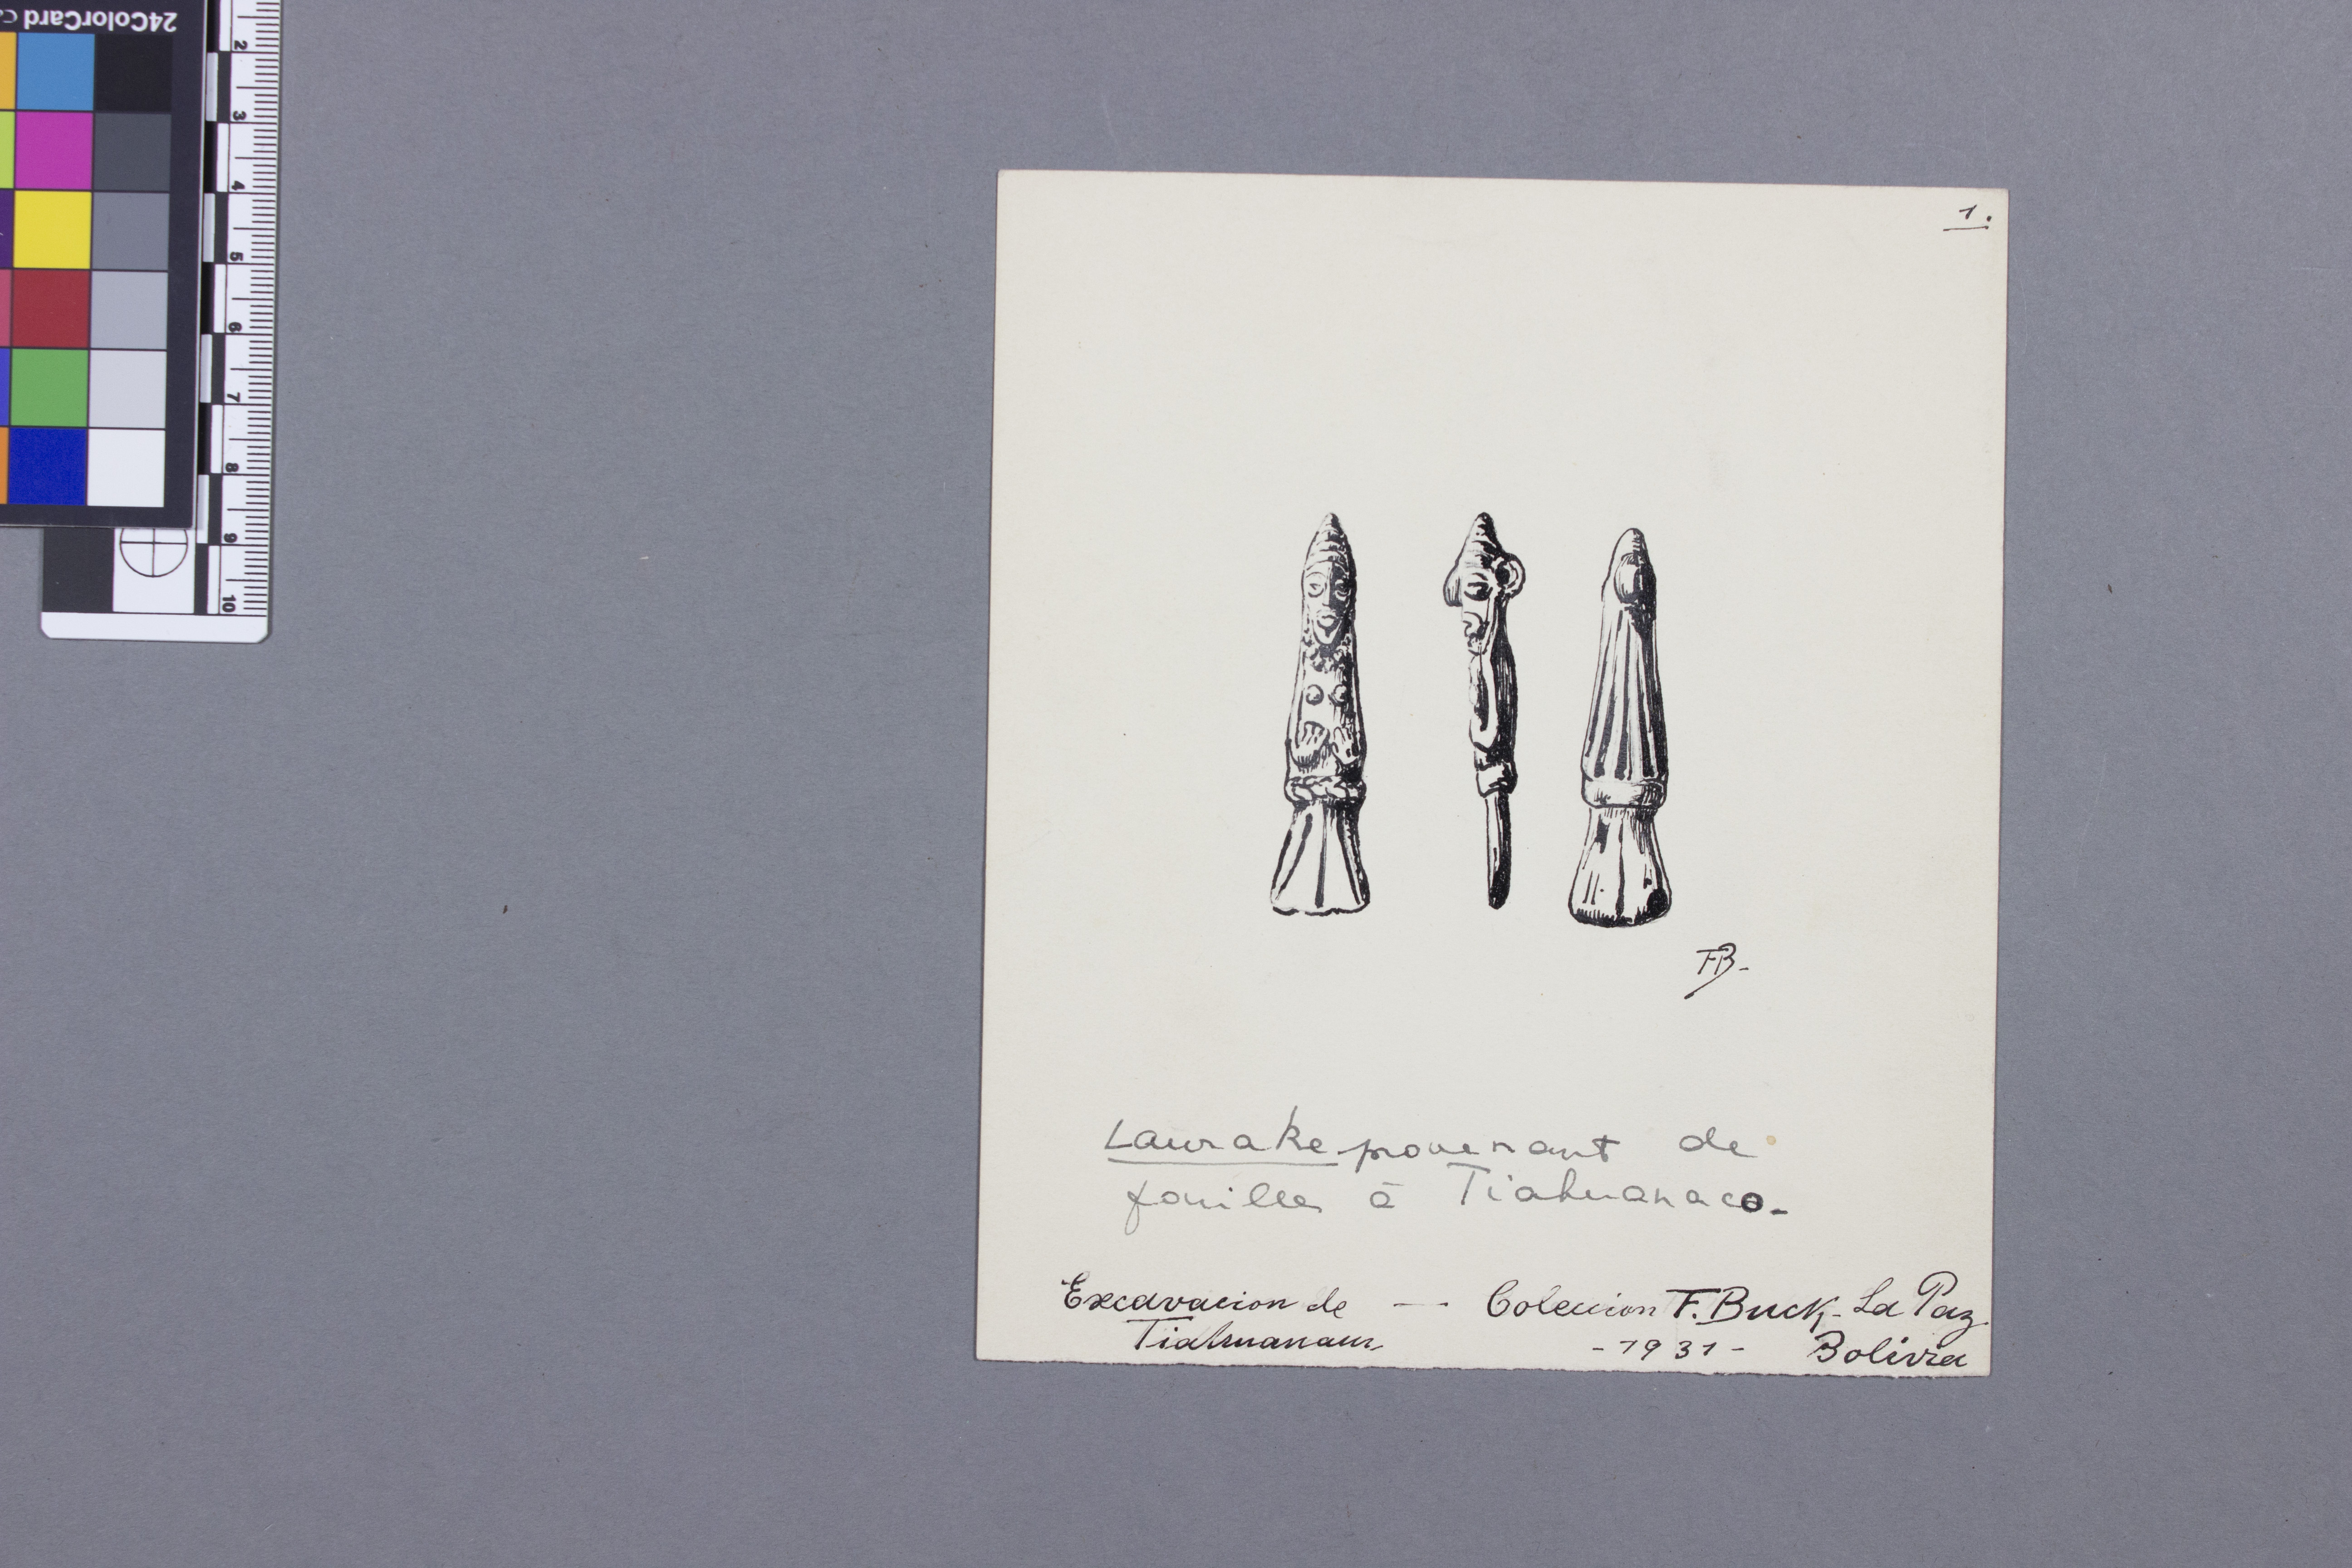 24ColorCard
2
3
4
5
6
7
8
9
10
1.
FB-
Laurake provenant de
fouilles à Tiahuanaco-
Excavacion de -- Coleccion F. Buck - La Paz
Tiahuanacu - 1931 - Bolivia